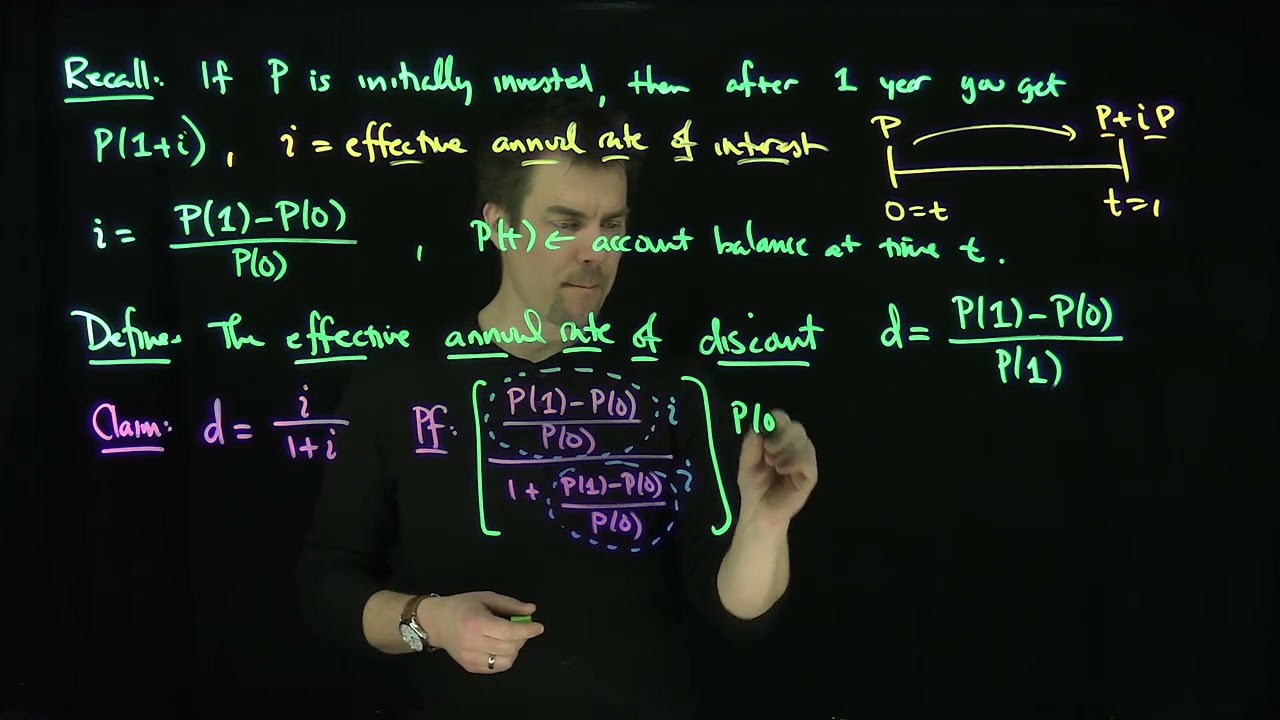 Recall: If P is initially invested, then after 1 year you get
P(1+i), i = effective annual rate of interest
P P+iP
0=t t=1
i = (P(1)-P(0))/P(0), P(t) ← account balance at time t.
Define: The effective annual rate of discount d = (P(1)-P(0))/P(1)
Claim: d = i/(1+i) Pf: [((P(1)-P(0))/P(0)) i / (1 + ((P(1)-P(0))/P(0)) i)] P(0